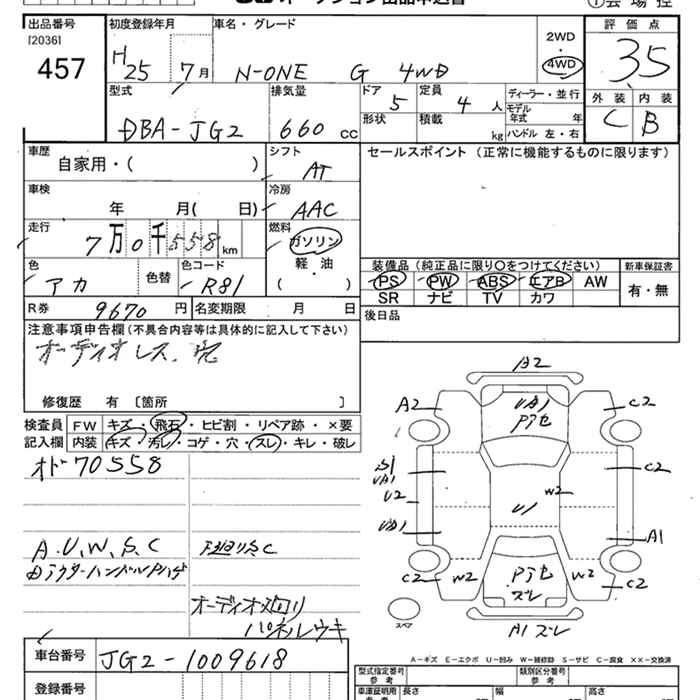 出品番号 初度登録年月 車名・グレード 2WD 評価点
[2036]
457 H25 7月 N-ONE G 4WD ・ 4WD 35
型式 排気量 ドア 定員 ディーラー・並行 外装 内装
DBA-JG2 660 cc 5 4 人 モデル年式 年 C B
形状 積載 kg ハンドル 左・右
車歴 シフト セールスポイント (正常に機能するものに限ります)
自家用・( ) AT
車検 冷房
年 月( 日) AAC
走行 燃料
7万0千558km ガソリン
色 色替 色コード 軽・油 装備品 (純正品に限り○をつけてください) 新車保証書
アカ R81 ( ) PS PW ABS エアB AW 有・無
SR ナビ TV カワ
R券 9670円 名変期限 月 日 後日品
注意事項申告欄(不具合内容等は具体的に記入して下さい)
オーディオレス
修復歴 有 [箇所 ]
検査員 FW キズ・飛石・ヒビ割・リペア跡・×要
記入欄 内装 キズ・汚レ・コゲ・穴・スレ・キレ・破レ
オド70558
A.U.W.S.C
オーディオ廻り
パネルウキ
A2
A2 UA1 C2
Pアセ
S1 C2
UA1
U2 W2
U1
UA1 A1
C2 W2 Pアセ W2 C2
ズレ
スペア A1 ズレ
A-キズ E-エクボ U-凹み W-補修跡 S-サビ C-腐食 ××-交換済
車台番号 JG2-1009618 型式指定番号 参考 類別区分番号 参考
登録番号 車庫証明用 参考 長さ 幅 高さ